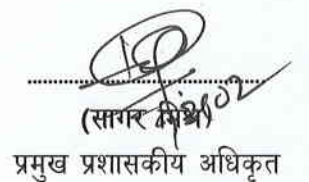 (सागर मिश्र)
प्रमुख प्रशासकीय अधिकृत